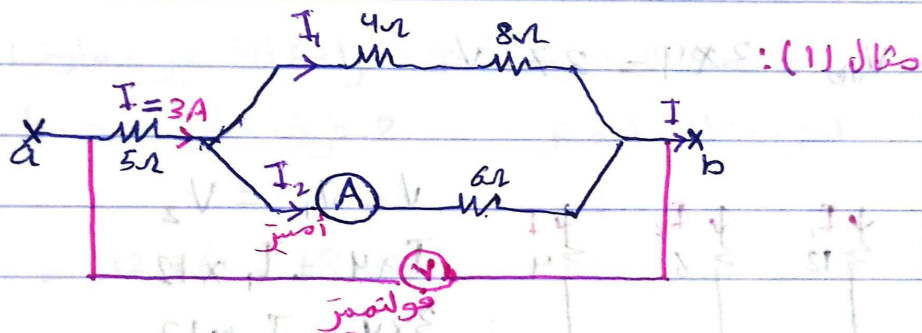 مثال (1):
I₁ 4Ω 8Ω
I = 3A
a 5Ω
I b
I₂ A 6Ω
أمتر
V
فولتمتر